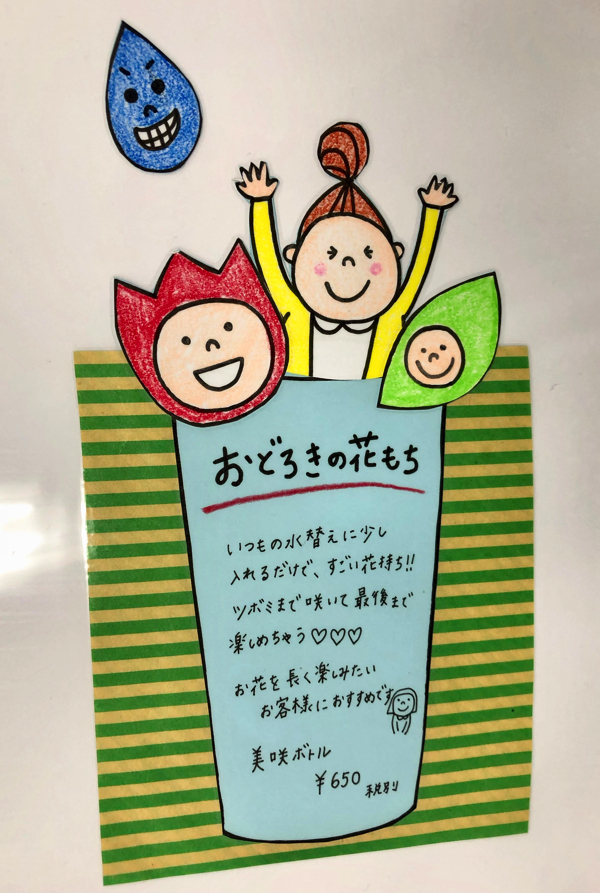 おどろきの花もち
いつもの水替えに少し
入れるだけで、すごい花持ち!!
ツボミまで咲いて最後まで
楽しめちゃう♡♡♡
お花を長く楽しみたい
お客様におすすめです
美咲ボトル
¥650 税別